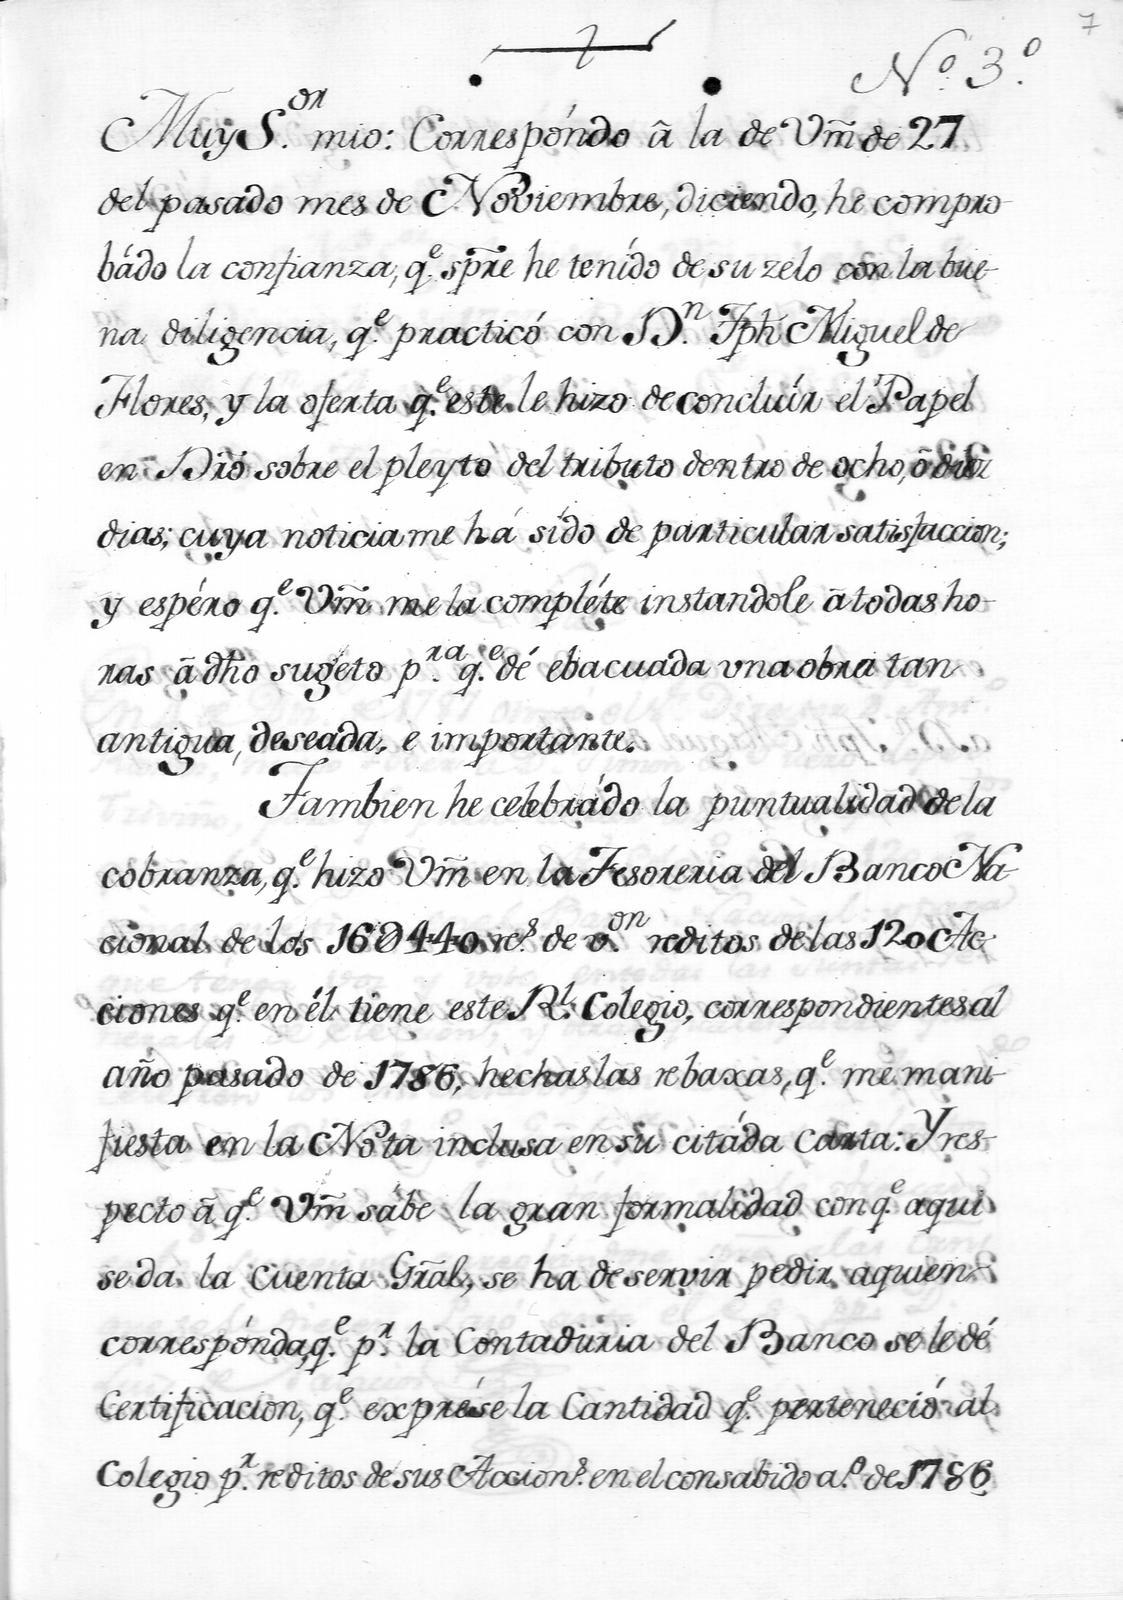 7
Nº 3º
Muy S.or mio: Correspóndo ã la de Vm̃ de 27
del pasado mes de Noviembre, diciendo, he compro-
bádo la confianza, q.e sp̃re he tenído de su zelo con la bue-
na diligencia, q.e practicó con D.n Jph Miguel de
Flores, y la oferta q.e este le hizo de concluír el Papel
en Dr̃o sobre el pleyto del tributo dentro de ocho, õ diez
dias; cuya noticia me há sído de particular satisfaccion;
y espéro q.e Vm̃ me la compléte instandole ã todas ho-
ras ã dho sugeto p.ra q.e dé ebacuada vna obra tan
antigua, deseada, e importante.
Tambien he celebrádo la puntualidad de la
cobranza, q.e hizo Vm̃ en la Tesoreria del Banco Na-
cional de los 160440 r.s de v.on reditos de las 120 Ac-
ciones q.e en él tiene este R.l Colegio, correspondientes al
año pasado de 1786, hechas las rebaxas, q.e me mani-
fiesta en la Nota inclusa en su citáda Carta: Y res-
pecto ã q.e Vm̃ sábe la gran formalidad con q.e aqui
se da la Cuenta Gr̃al, se ha de servir pedir aquien
correspónda, q.e p.r la Contaduria del Banco se le dé
Certificacion, q.e exprése la Cantidad q.e perteneció al
Colegio p.r reditos de sus Accion.s en el consabido a.o de 1786